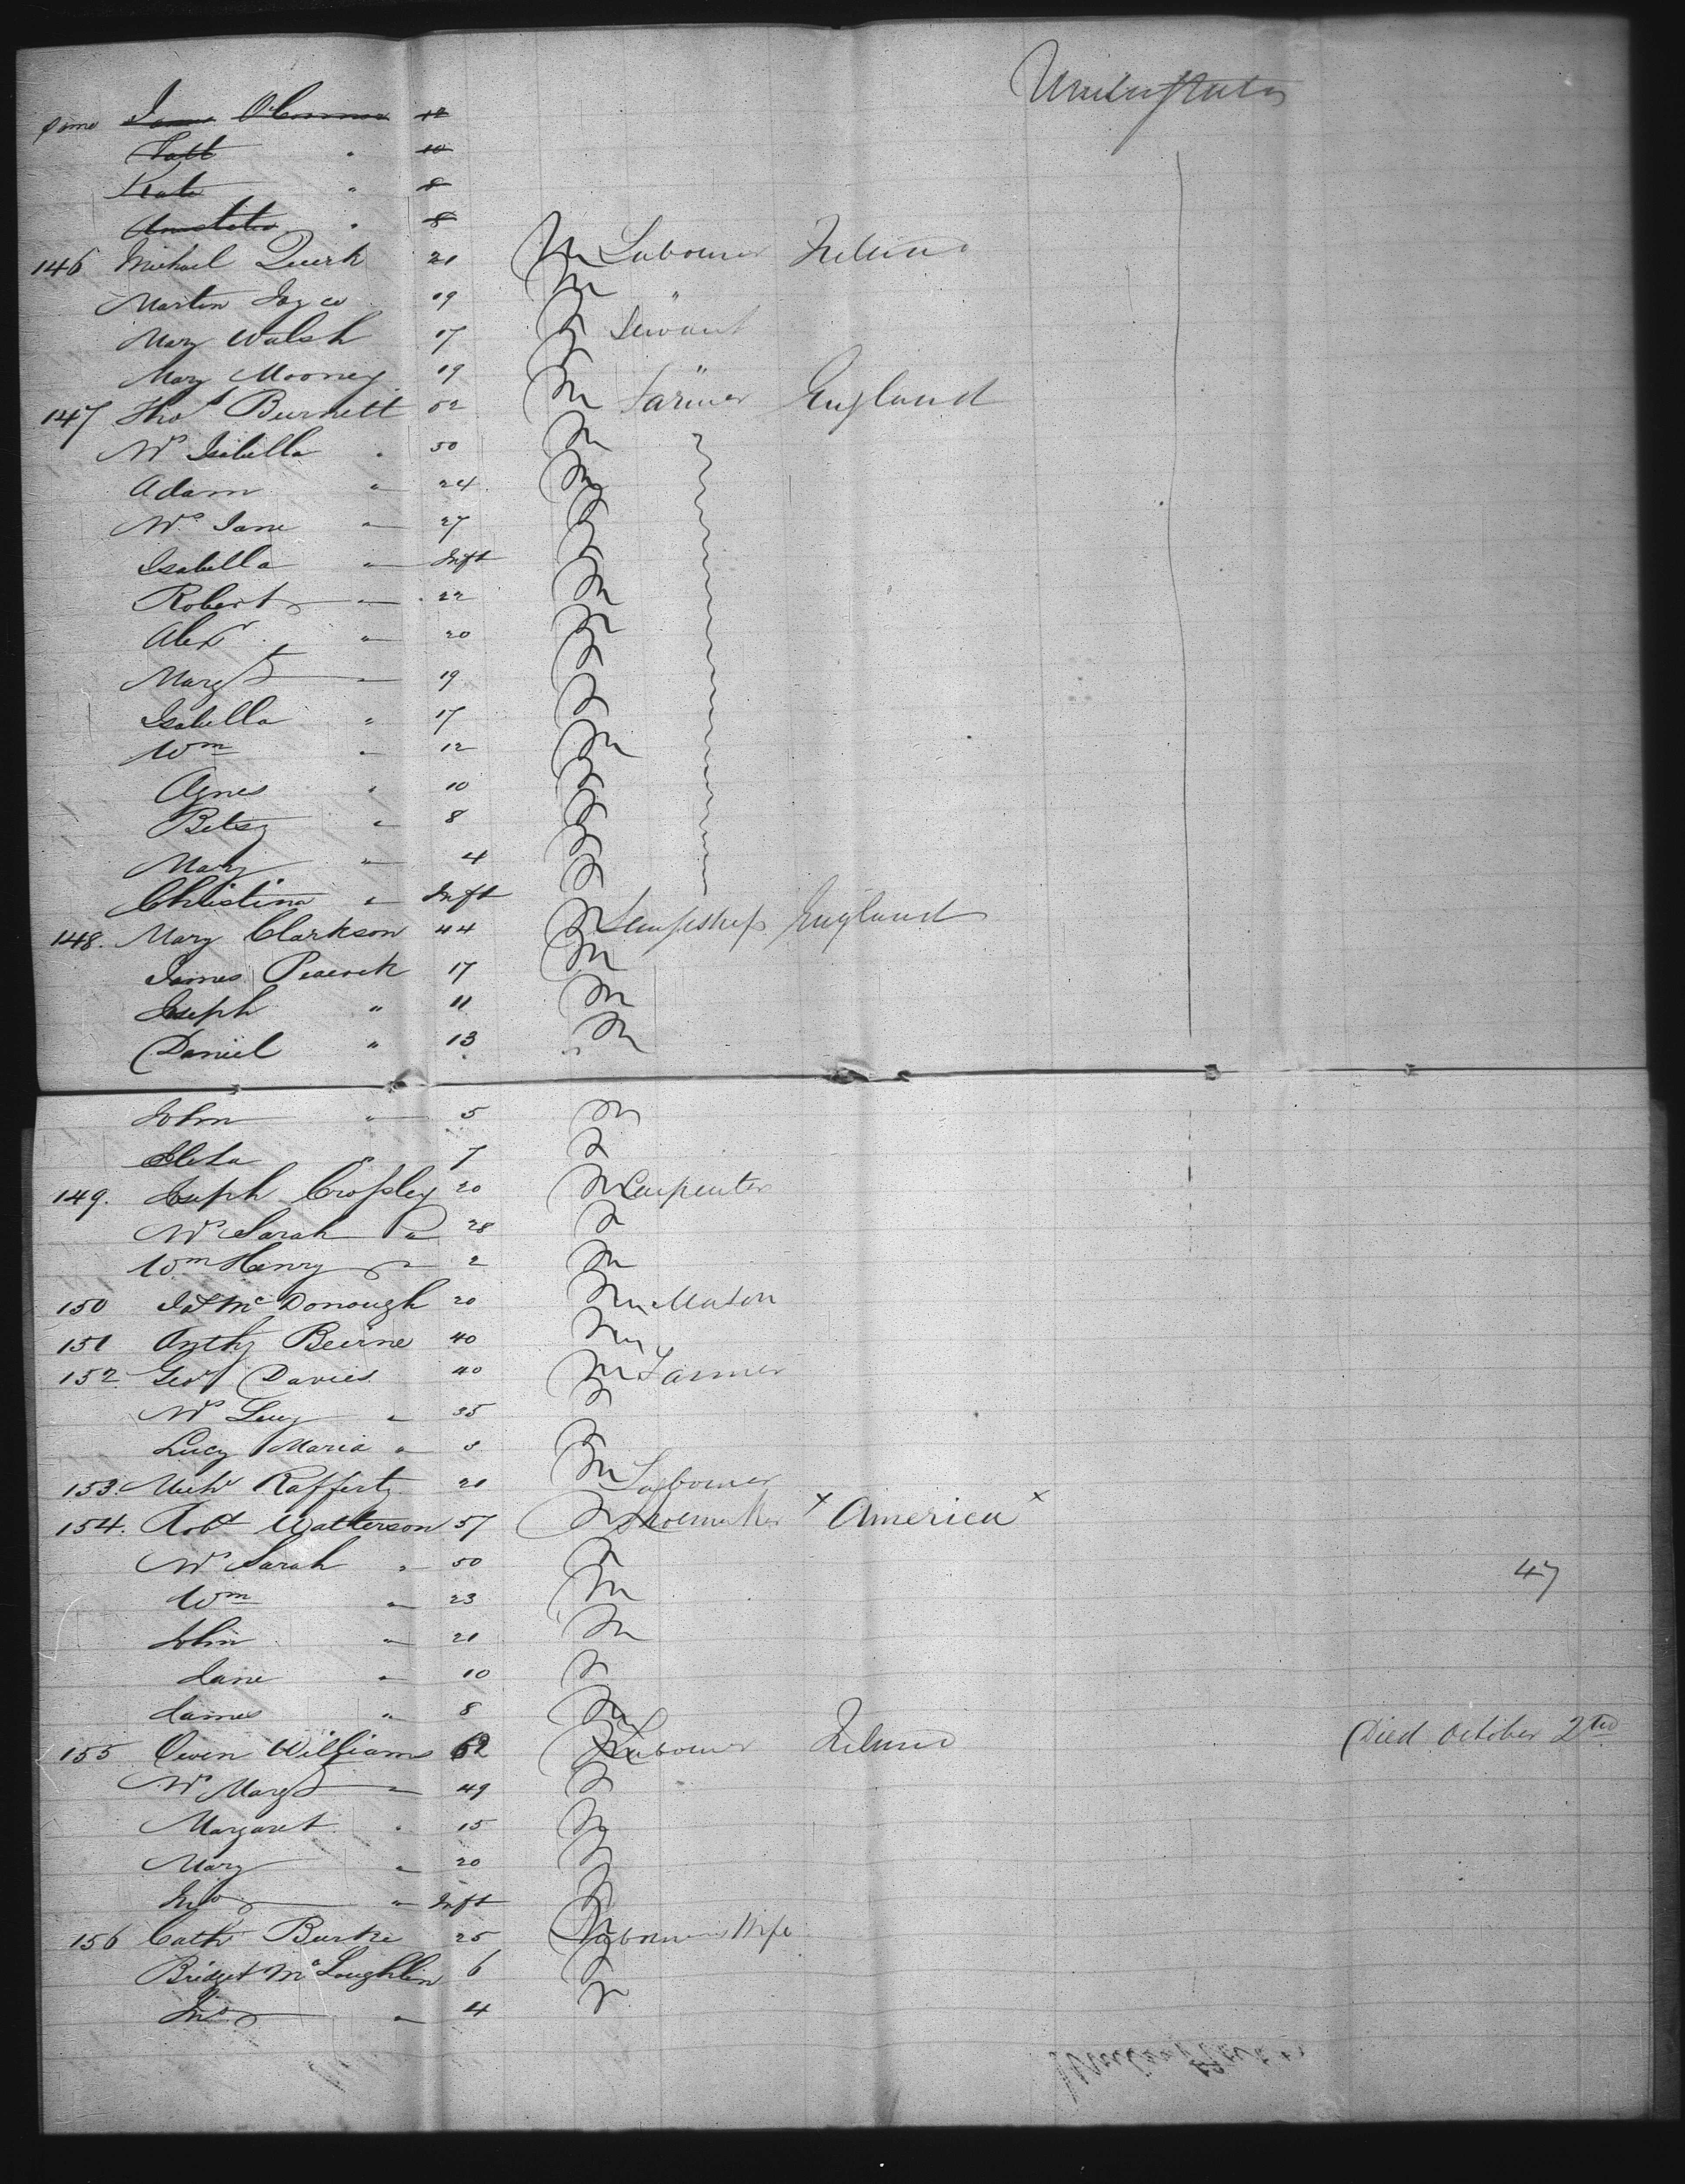 United States
James O'Connor 12
Patt " 10
Kate " 8
" 8
146 Michael Quirk 21 M Labourer Ireland
Martin Joyce 19 M "
Mary Walsh 17 F Servant
Mary Mooney 19 F "
147 Thos Burnett 52 M Farmer England
Mrs Isabella " 50
Adam " 24 M
Mrs Jane " 27 F
Isabella " Inft F
Robert " 22 M
Alexr " 20 M
Margt " 19 F
Isabella " 17 F
Wm " 12 M
Agnes " 10 F
Betsy " 8 F
Mary " 4 F
Christina " Inft F
148. Mary Clarkson 44 F England
James Peacock 17 M
Joseph " 11 M
Daniel " 13 M
John " 5 M
" 7 F
149. Joseph Crossley 20 M Carpenter
Mrs Sarah " 28 F
Wm Henry " 2 M
150 McDonough 20 M Mason
151 Anthy Beirne 40 M
152 Geo Davies 40 M Farmer
Mrs Lucy " 35 F
Lucy Maria " 3 F
153. Michl Rafferty 21 M Labourer
154. Robt Watterson 57 M Shoemaker x America x
Mrs Sarah " 50 F 47
Wm " 23 M
John " 21 M
Jane " 10 F
James " 8 M
155 Owen Williams 62 M Labourer Ireland Died October 2nd
Mrs Margt " 49 F
Margaret " 15 F
Mary " 20 F
" Inft
156 Cath Burke 25 F Labourers Wife
Bridget McLoughlin 6 F
" 4